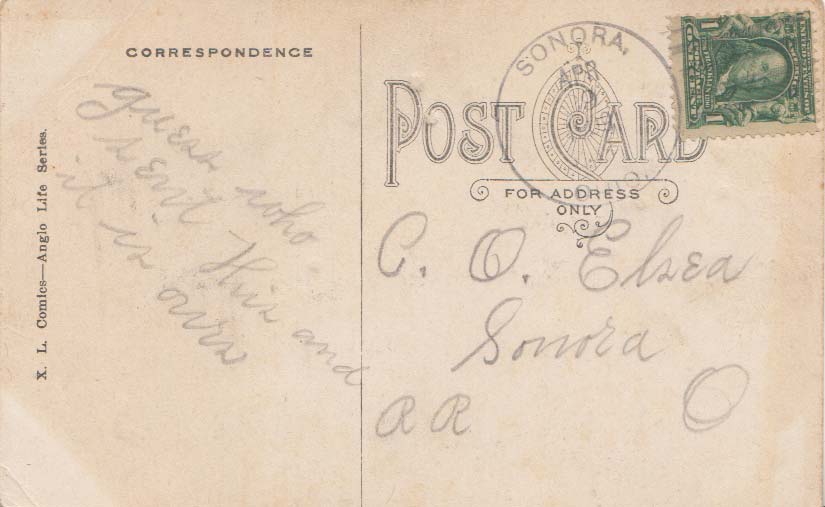 CORRESPONDENCE
guess who
sent this and
it is ours
X. L. Comics—Anglo Life Series.
POST CARD
FOR ADDRESS
ONLY
SONORA,
APR
OHIO.
C. O. Elsea
Sonora
RR O
1 1